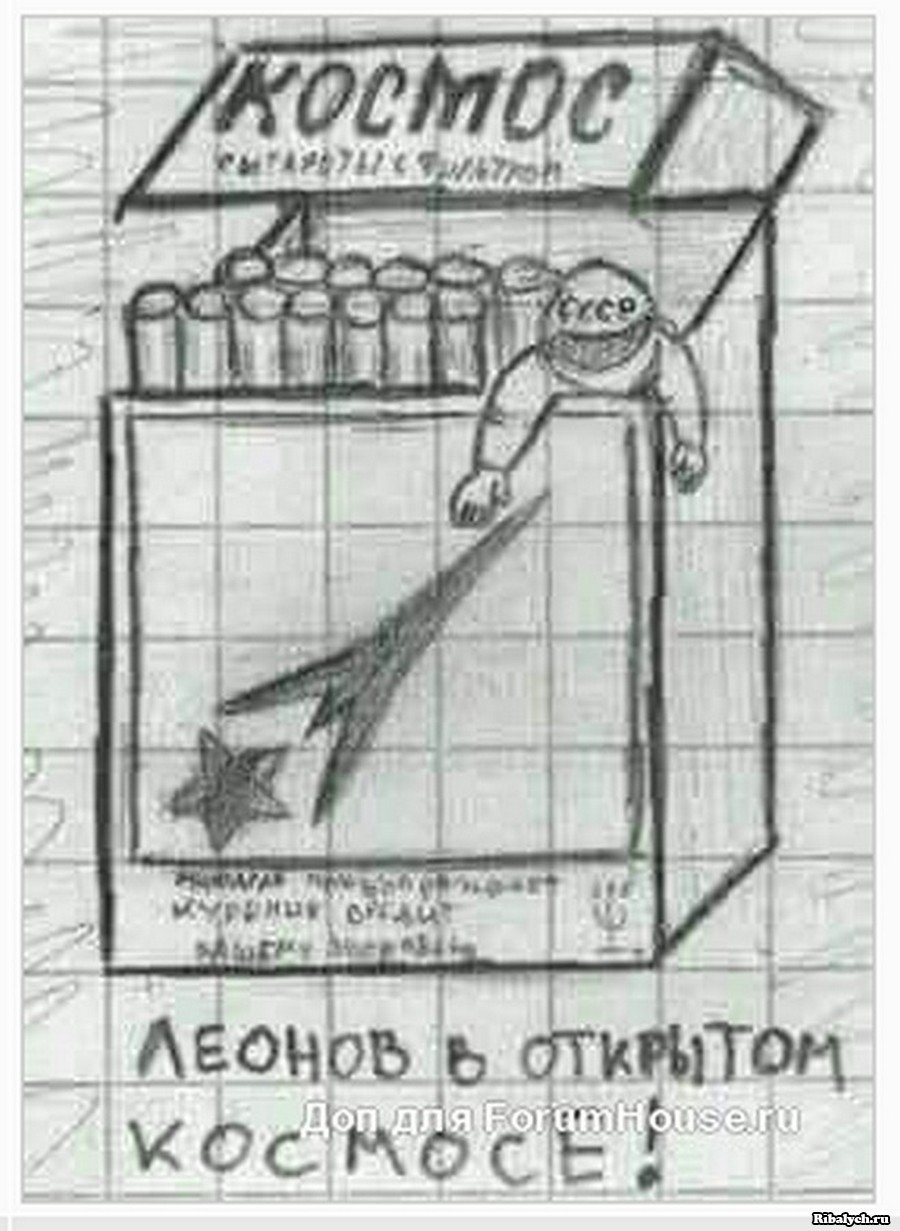 КОСМОС
СЫГАРЕТЫ С ФИЛЬТРОМ
СССР
КУРЕНИЕ ВРЕДИТ
ВАШЕМУ ЗДОРОВЬЮ
ЛЕОНОВ В ОТКРЫТОМ
КОСМОСЕ!
Доп для ForumHouse.ru
Ribalych.ru